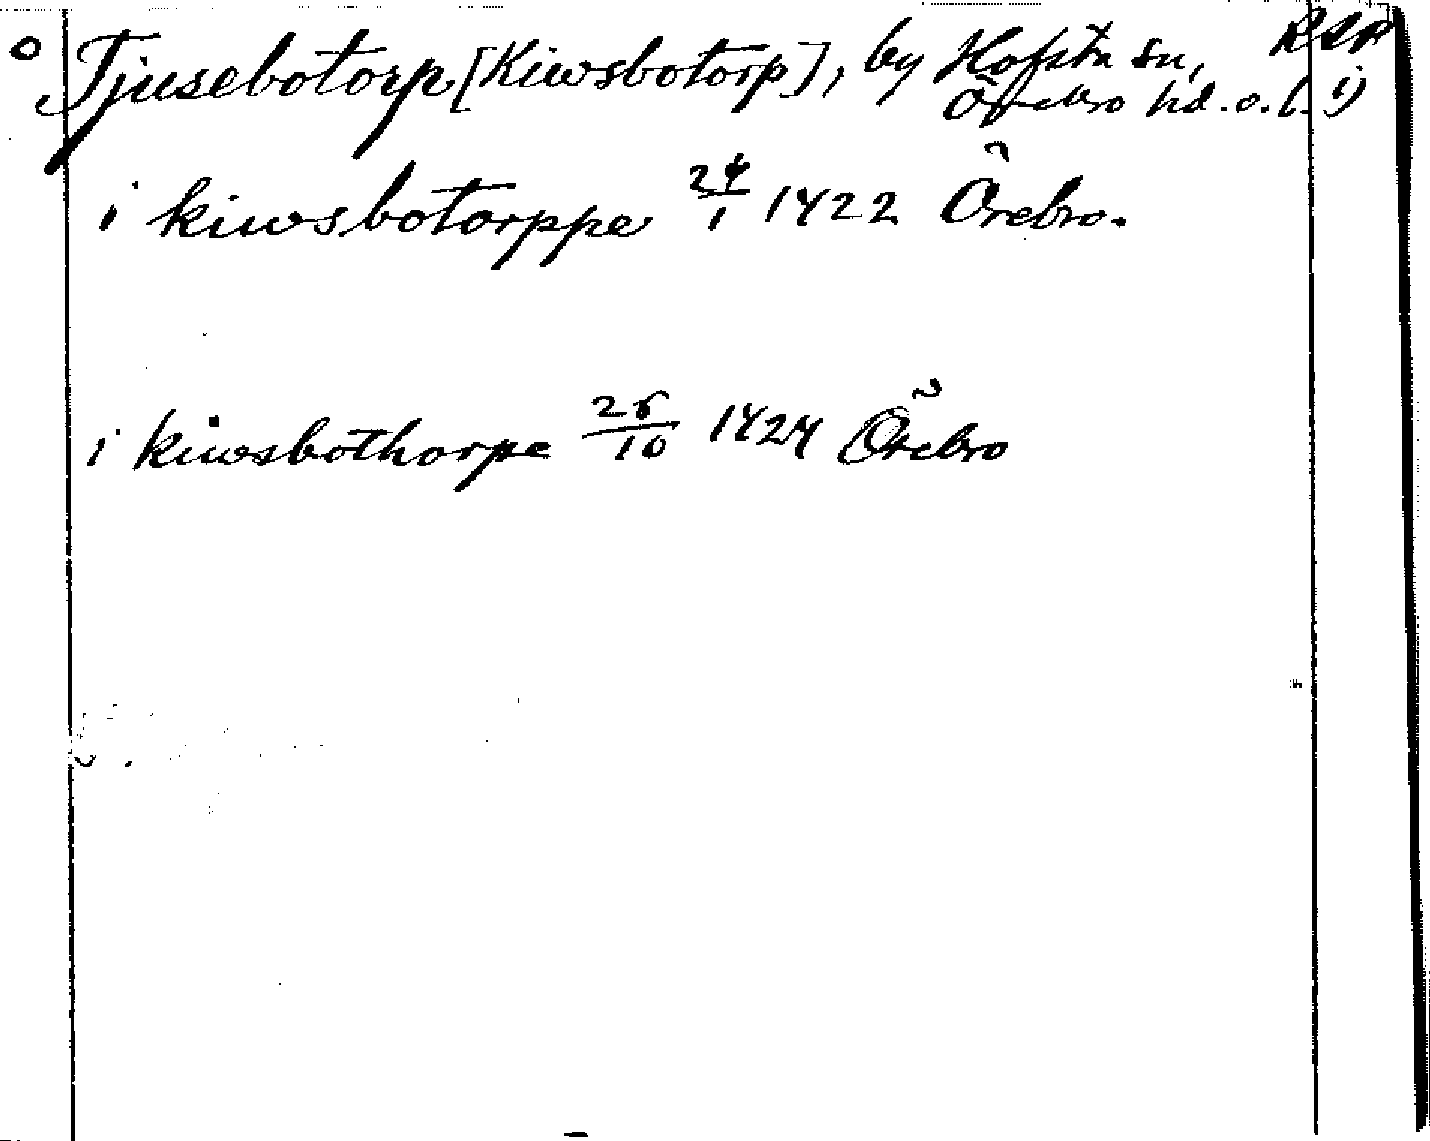 o Tjusebotorp [Kiwsbotorp], by Hofsta sn,
Örebro hd. o. l.
i kiwsbotorppe 24/1 1422 Örebro.
i kiwsbothorpe 25/10 1424 Örebro